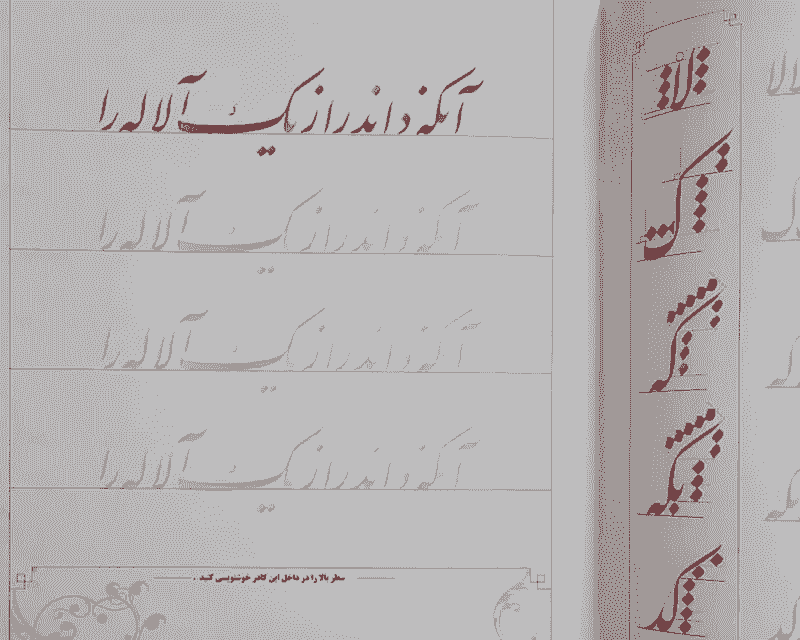 آنکه داند راز یک آلاله را
آنکه داند راز یک آلاله را
آنکه داند راز یک آلاله را
آنکه داند راز یک آلاله را
سطر بالا را در داخل این کادر خوشنویسی کنید .